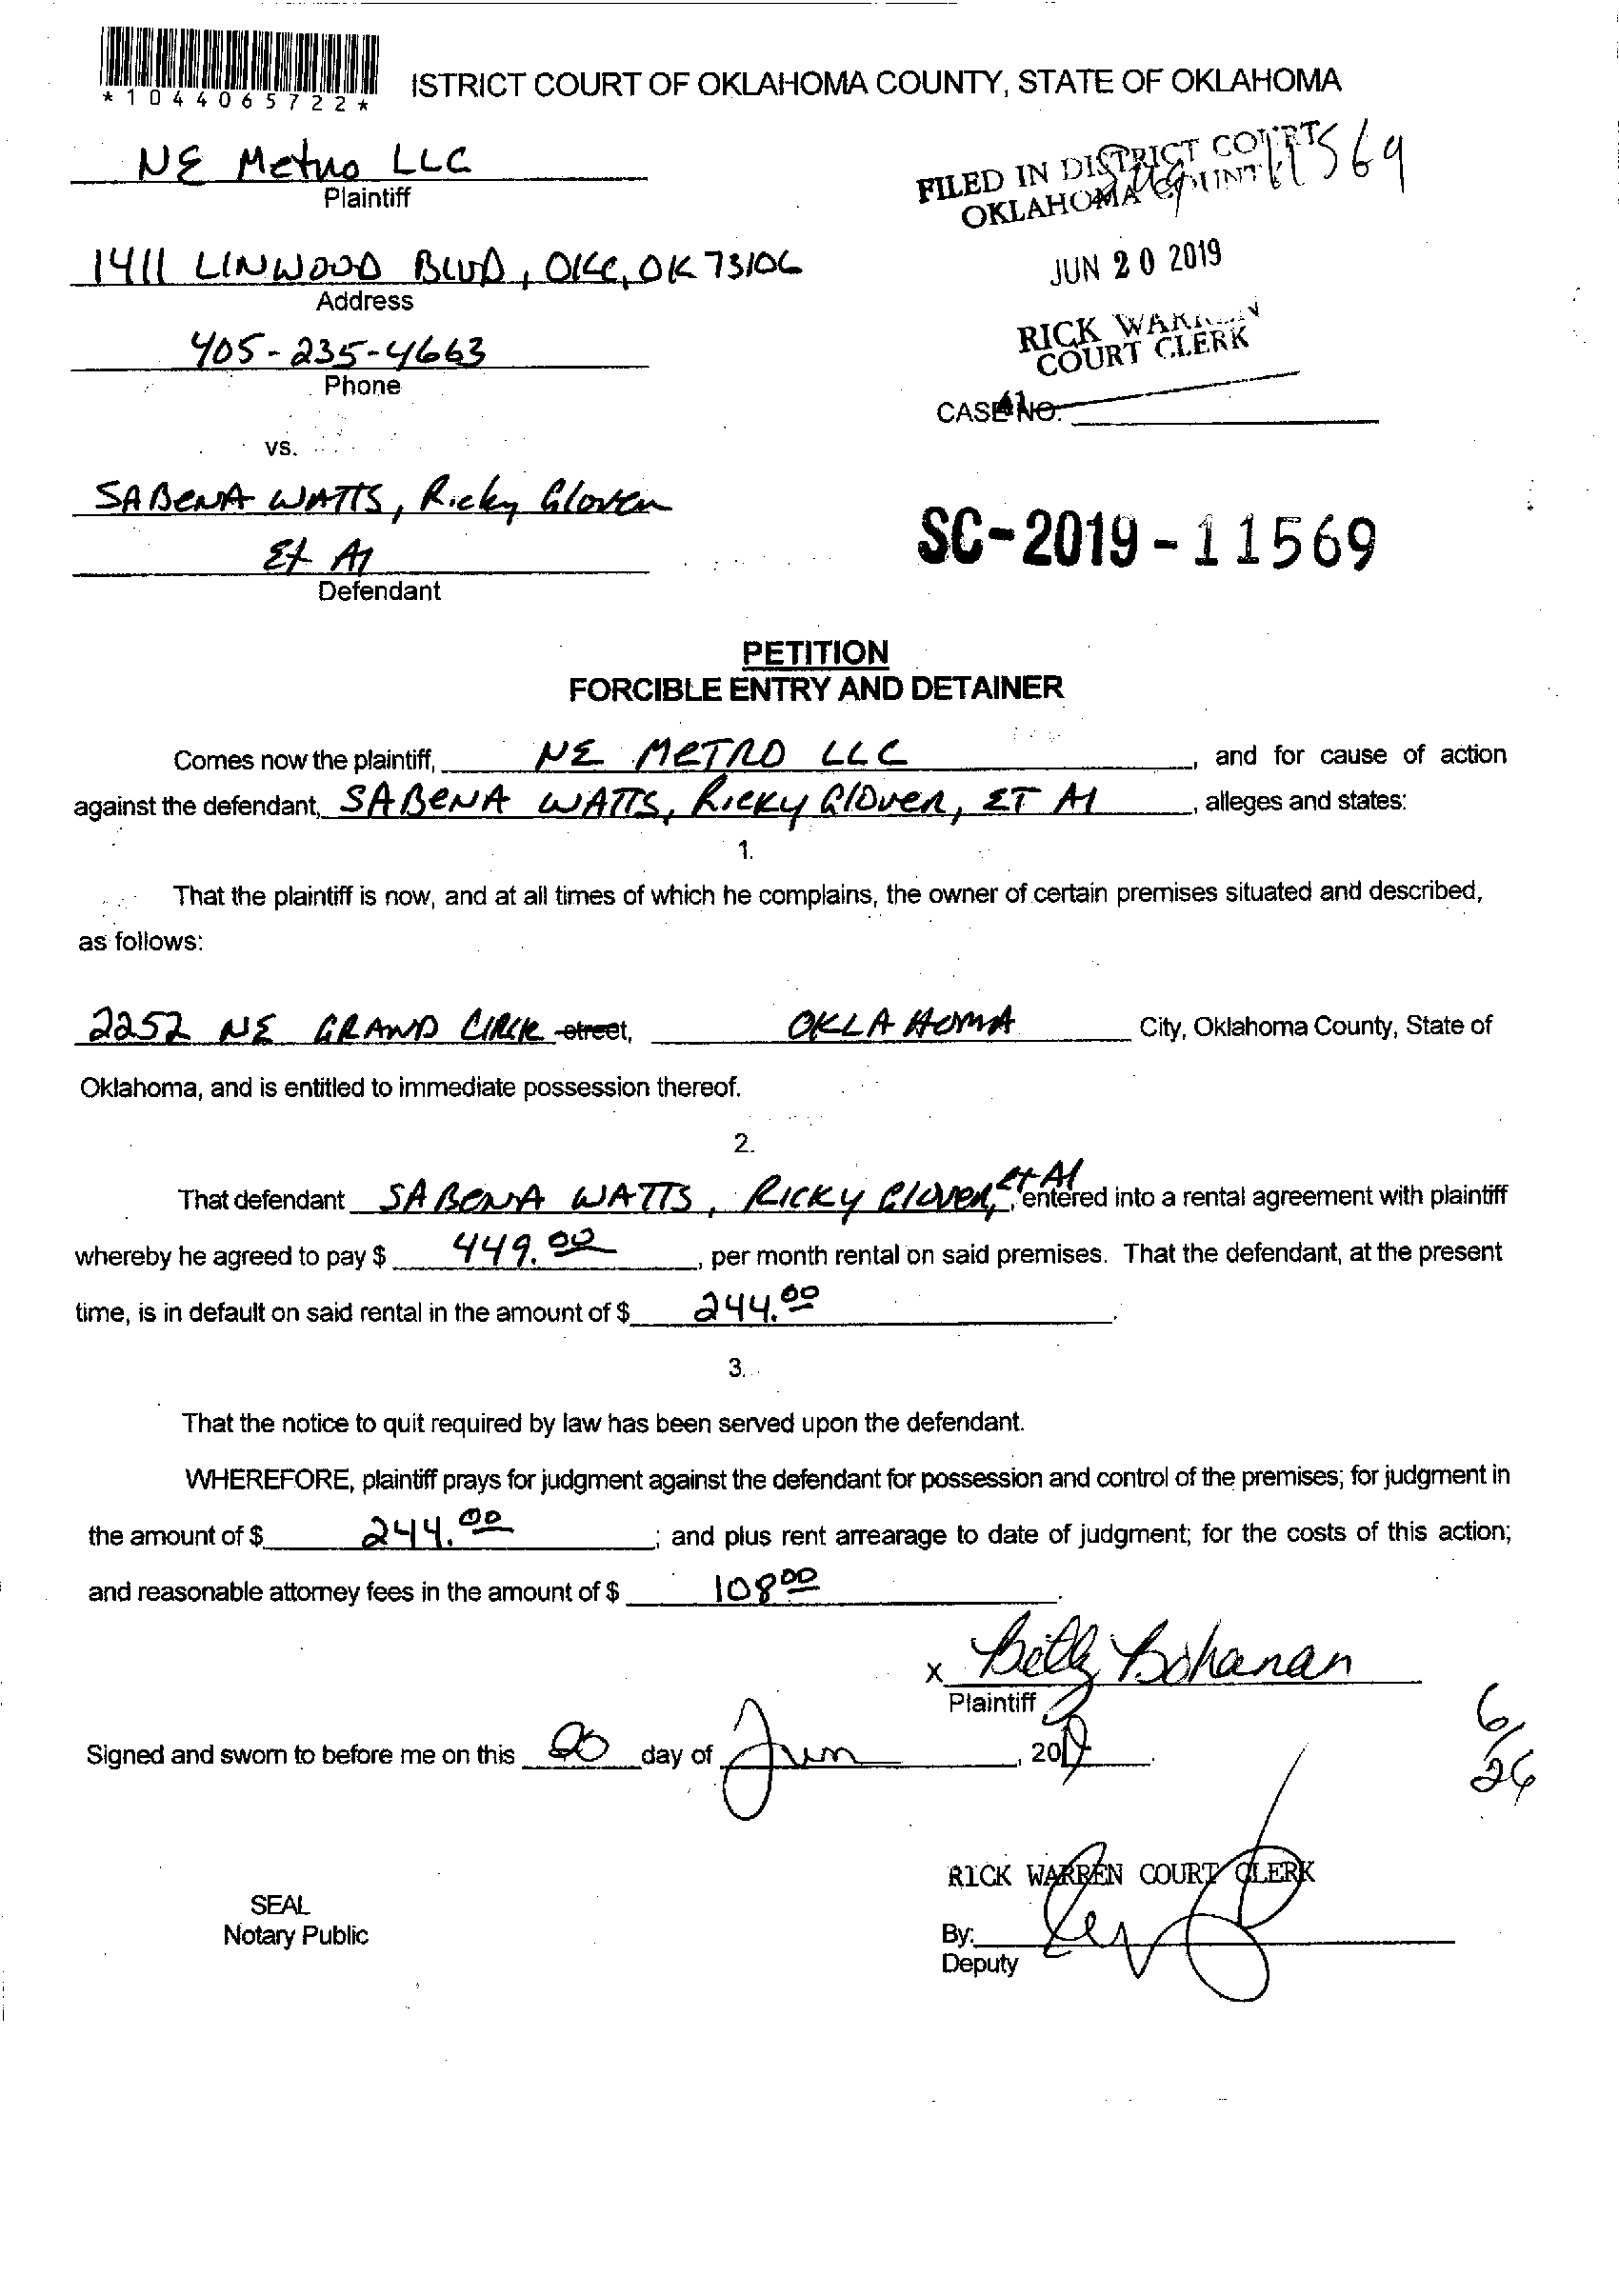 *1044065722*
ISTRICT COURT OF OKLAHOMA COUNTY, STATE OF OKLAHOMA
NE Metro LLC
Plaintiff
FILED IN DISTRICT COURT
OKLAHOMA COUNTY
11569
1411 LINWOOD BLVD, OKC, OK 73106
Address
JUN 20 2019
405-235-4663
Phone
RICK WARREN
COURT CLERK
CASE NO.
vs.
SABENA WATTS, Ricky Glover
Et Al
Defendant
SC-2019-11569
PETITION
FORCIBLE ENTRY AND DETAINER
Comes now the plaintiff, NE METRO LLC, and for cause of action
against the defendant, SABENA WATTS, Ricky Glover, ET Al, alleges and states:
1.
That the plaintiff is now, and at all times of which he complains, the owner of certain premises situated and described,
as follows:
2252 NE GRAND CIRCLE street, OKLAHOMA City, Oklahoma County, State of
Oklahoma, and is entitled to immediate possession thereof.
2.
That defendant SABENA WATTS, RICKY Glover, et Al, entered into a rental agreement with plaintiff
whereby he agreed to pay $ 449.00, per month rental on said premises. That the defendant, at the present
time, is in default on said rental in the amount of $ 244.00.
3.
That the notice to quit required by law has been served upon the defendant.
WHEREFORE, plaintiff prays for judgment against the defendant for possession and control of the premises; for judgment in
the amount of $ 244.00; and plus rent arrearage to date of judgment; for the costs of this action;
and reasonable attorney fees in the amount of $ 108.00.
x Betty Bohanan
Plaintiff
6/26
Signed and sworn to before me on this 20 day of Jun, 2019.
RICK WARREN COURT CLERK
SEAL
Notary Public
By:
Deputy